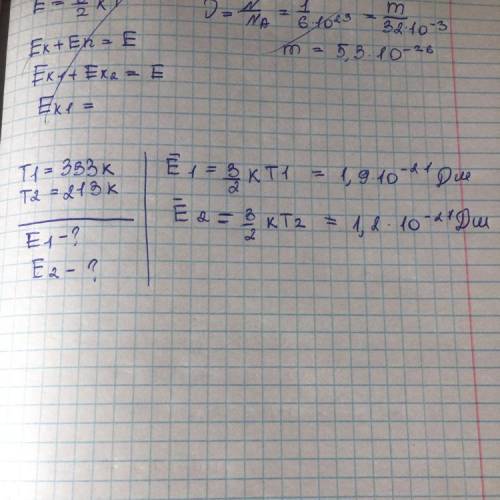 Eк + Eп = E
Eк1 + Eк2 = E
Eк1 =
ν = N/N_A = 1/6·10²³ = m/32·10⁻³
m = 5,3·10⁻²⁶
T1 = 333к
T2 = 213к
E1 - ?
E2 - ?
Ē1 = 3/2 кT1 = 1,9 10⁻²¹ Дж
Ē2 = 3/2 кT2 = 1,2·10⁻²¹ Дж